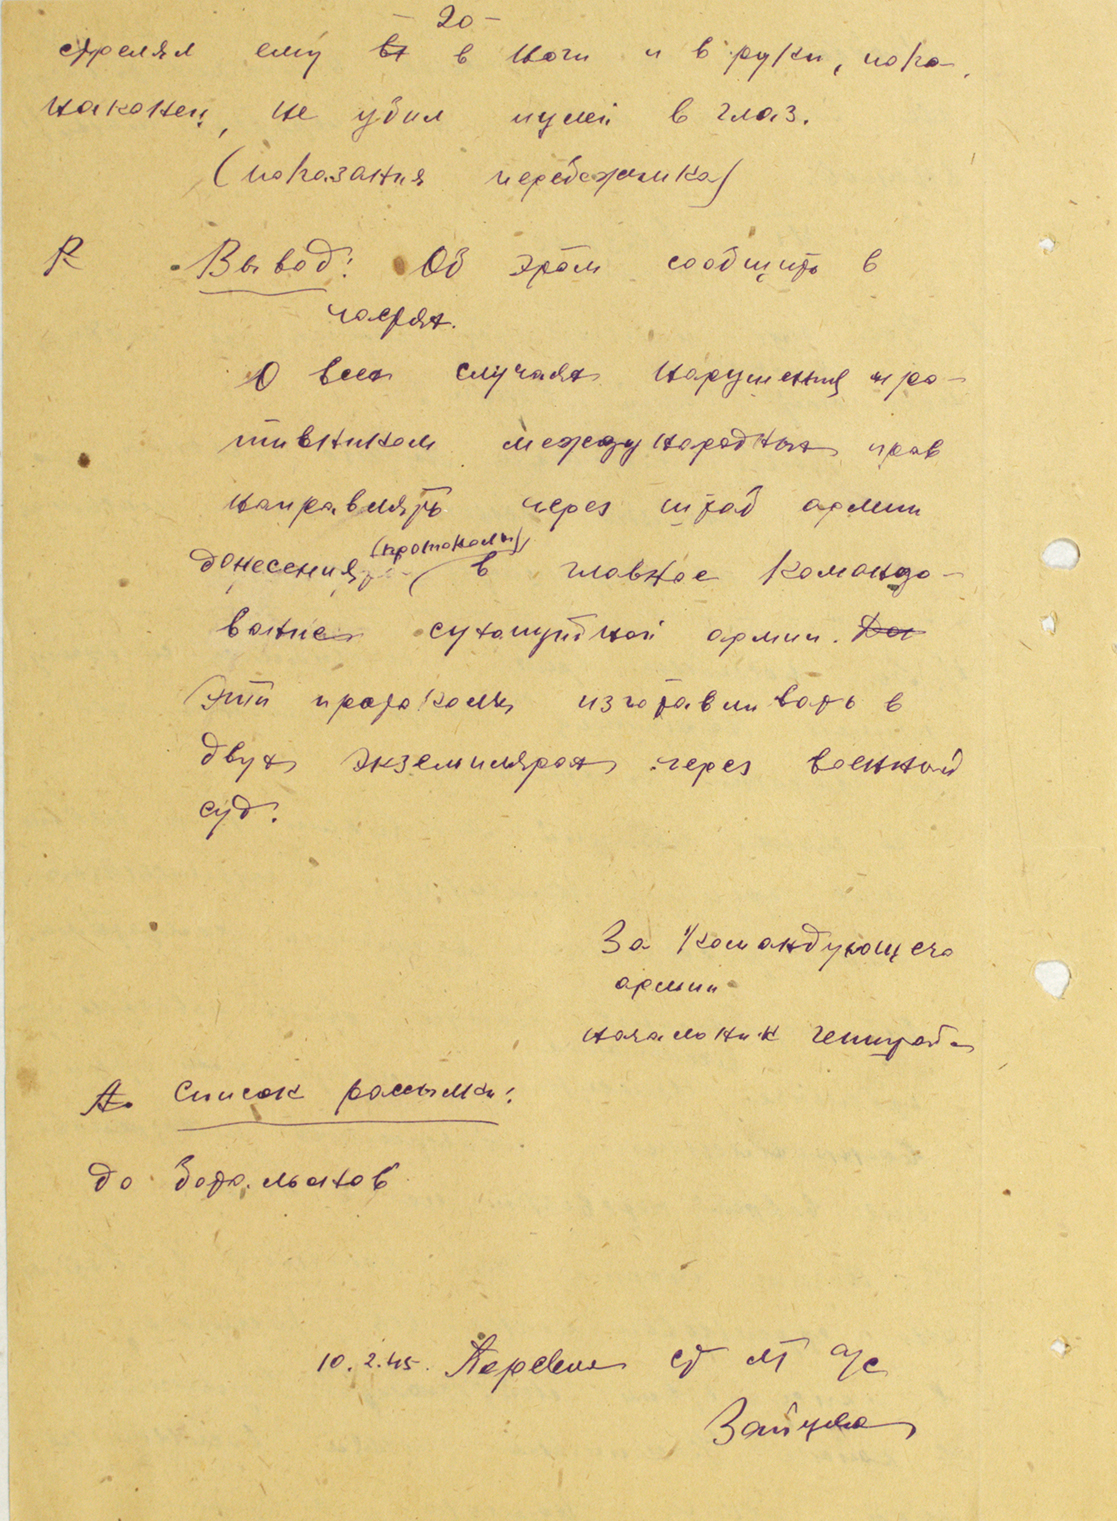 - 20 -
стрелял ему в ноги и в руки, пока,
наконец, не убил пулей в глаз.
(показания перебежчика)
Вывод: Об этом сообщить в
частях.
О всех случаях нарушения про-
тивником международных прав
направлять через штаб армии
(протоколы)
донесения в главное командо-
вание сухопутной армии.
Эти протоколы изготавливать в
двух экземплярах через военный
суд.
За Командующего
армии
начальник генштаба
Список рассылки:
до батальонов
10.2.45. Перевела ст лт а/с
Зайцева